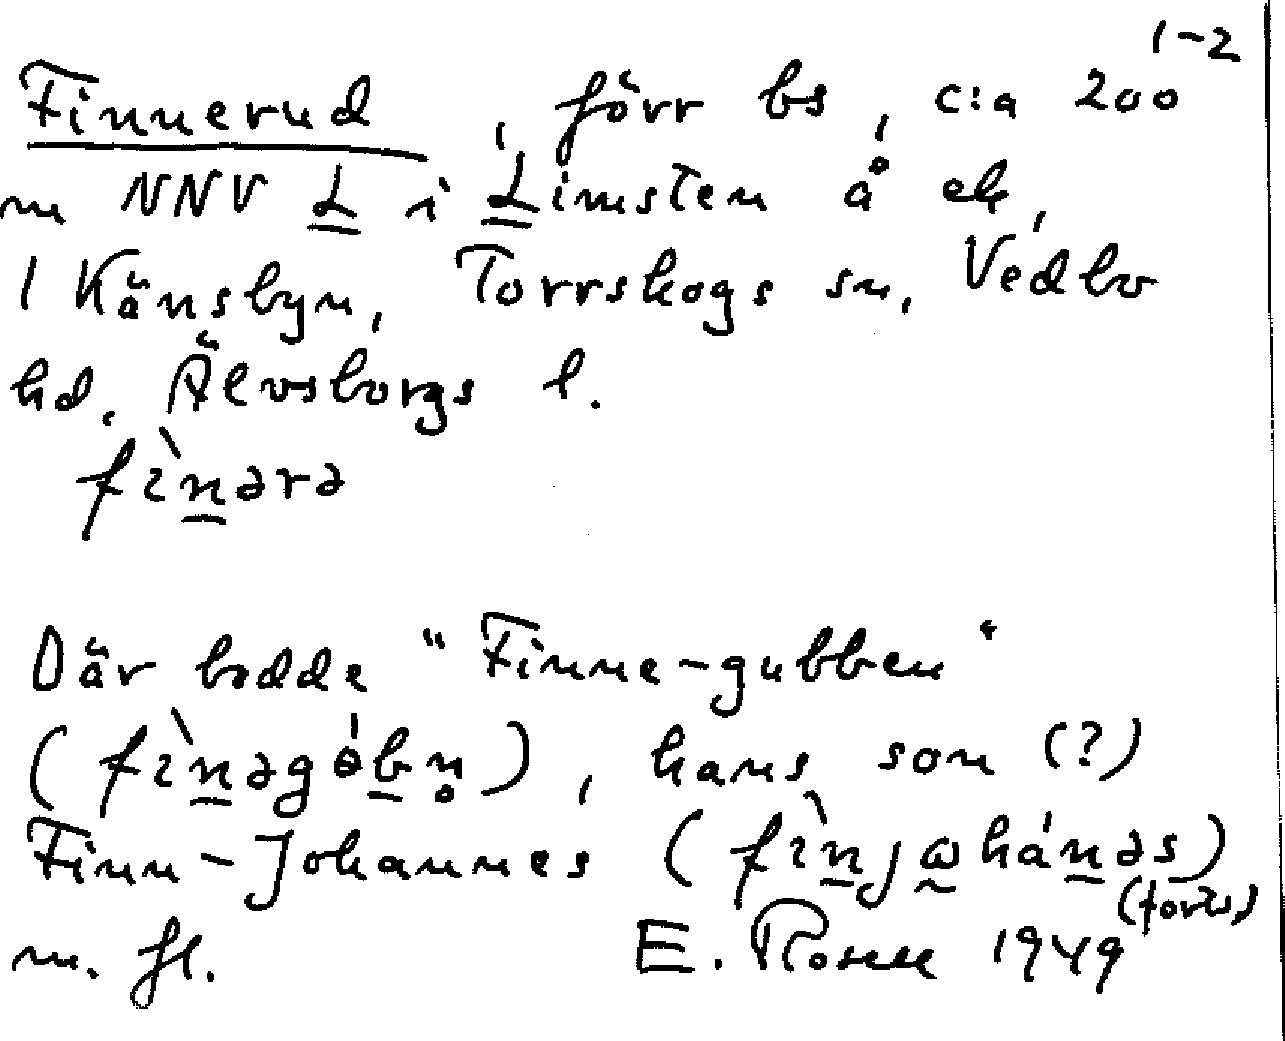 1-2
Finnerud, förr bs, c:a 200
m NNV L i Limsten å ek,
1 Känsbyn, Torrskogs sn, Vedbo
hd, Älvsborgs l.
fìn̲ərə
Där bodde "Finne-gubben"
(fìn̲əgób̲n̥), hans son (?)
Finn-Johannes (fìn̲jω̰hán̲əs)
(forts)
m. fl. E. Rosell 1949